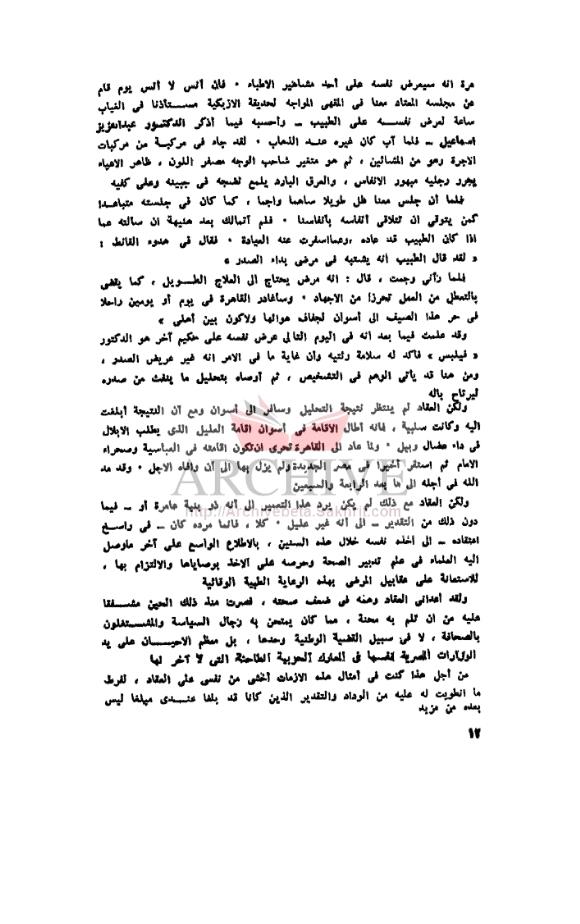 مرة انه سيعرض نفسه على أحد مشاهير الاطباء ٠ فان أنس لا أنس يوم قام
عن مجلسه المعتاد معنا فى المقهى المواجه لحديقة الازبكية مستأذنا فى الغياب
ساعة لعرض نفسه على الطبيب ــ وأحسبه فيما أذكر الدكتور عبدالعزيز
اسماعيل ــ فلما آب كان غيره عند الذهاب ٠ لقد جاء فى مركبة من مركبات
الاجرة وهو من المشائين ، ثم هو متغير شاحب الوجه مصفر اللون ، ظاهر الاعياء
يجرر رجليه مبهور الانفاس ، والعرق البارد يلمع نضحه فى جبينه وعلى كفيه
فلما أن جلس معنا ظل طويلا ساهما واجما ، كما كان فى جلسته متباعدا
كمن يتوقى ان تتلاقى أنفاسه بأنفاسنا ٠ فلم أتمالك بعد هنيهة ان سألته عما
اذا كان الطبيب قد عاده ، وعما اسفرت عنه العيادة ٠ فقال فى هدوء القانط :
« لقد قال الطبيب انه يشتبه فى مرضى بداء الصدر »
فلما رآنى وجمت ، قال : انه مرض يحتاج الى العلاج الطويل ، كما يقضى
بالتعطل من العمل تحرزا من الاجهاد ٠ وسأغادر القاهرة فى يوم أو يومين راحلا
فى حر هذا الصيف الى أسوان لجفاف هوائها ولاكون بين أهلى »
وقد علمت فيما بعد انه فى اليوم التالى عرض نفسه على حكيم آخر هو الدكتور
« فيلبس » فأكد له سلامة رئتيه وأن غاية ما فى الامر انه غير عريض الصدر ،
ومن هنا قد يأتى الوهم فى التشخيص ، ثم أوصاه بتحليل ما ينفث من صدره
ليرتاح باله
ولكن العقاد لم ينتظر نتيجة التحليل وسافر الى أسوان ومع أن النتيجة أبلغت
اليه وكانت سلبية ، فانه أطال الاقامة فى أسوان اقامة العليل الذى يطلب الابلال
فى داء عضال وبيل ٠ ولما عاد الى القاهرة تحرى ان تكون اقامته فى العباسية وصحراء
الامام ثم استقر أخيرا فى مصر الجديدة ولم يزل بها الى أن وافاه الاجل ٠ وقد مد
الله فى أجله الى ما بعد الرابعة والسبعين
ولكن العقاد مع ذلك لم يكن يرد هذا التعمير الى أنه ذو بنية عامرة أو ــ فيما
دون ذلك من التقدير ــ الى أنه غير عليل ٠ كلا ، فانما مرده كان ــ فى راسخ
اعتقاده ــ الى أخذه نفسه خلال هذه السنين ، بالاطلاع الواسع على آخر ماوصل
اليه العلماء فى علم تدبير الصحة وحرصه على الاخذ بوصاياها والالتزام بها ،
للاستعانة على عقابيل المرض بهذه الرعاية الطبية الوقائية
ولقد أعدانى العقاد وهمه فى ضعف صحته ، فصرت منذ ذلك الحين مشفقا
عليه من ان تلم به محنة ، مما كان يمتحن به رجال السياسة والمشتغلون
بالصحافة ، لا فى سبيل القضية الوطنية وحدها ، بل معظم الاحيان على يد
الوزارات المصرية نفسها فى المعارك الحزبية الطاحنة التى لا آخر لها
من أجل هذا كنت فى أمثال هذه الازمات أخشى من نفسى على العقاد ، لفرط
ما انطويت له عليه من الوداد والتقدير الذين كانا قد بلغا عندى مبلغا ليس
بعده من مزيد
١٢
ARCHIVE
http://Archivebeta.Sakhrit.com